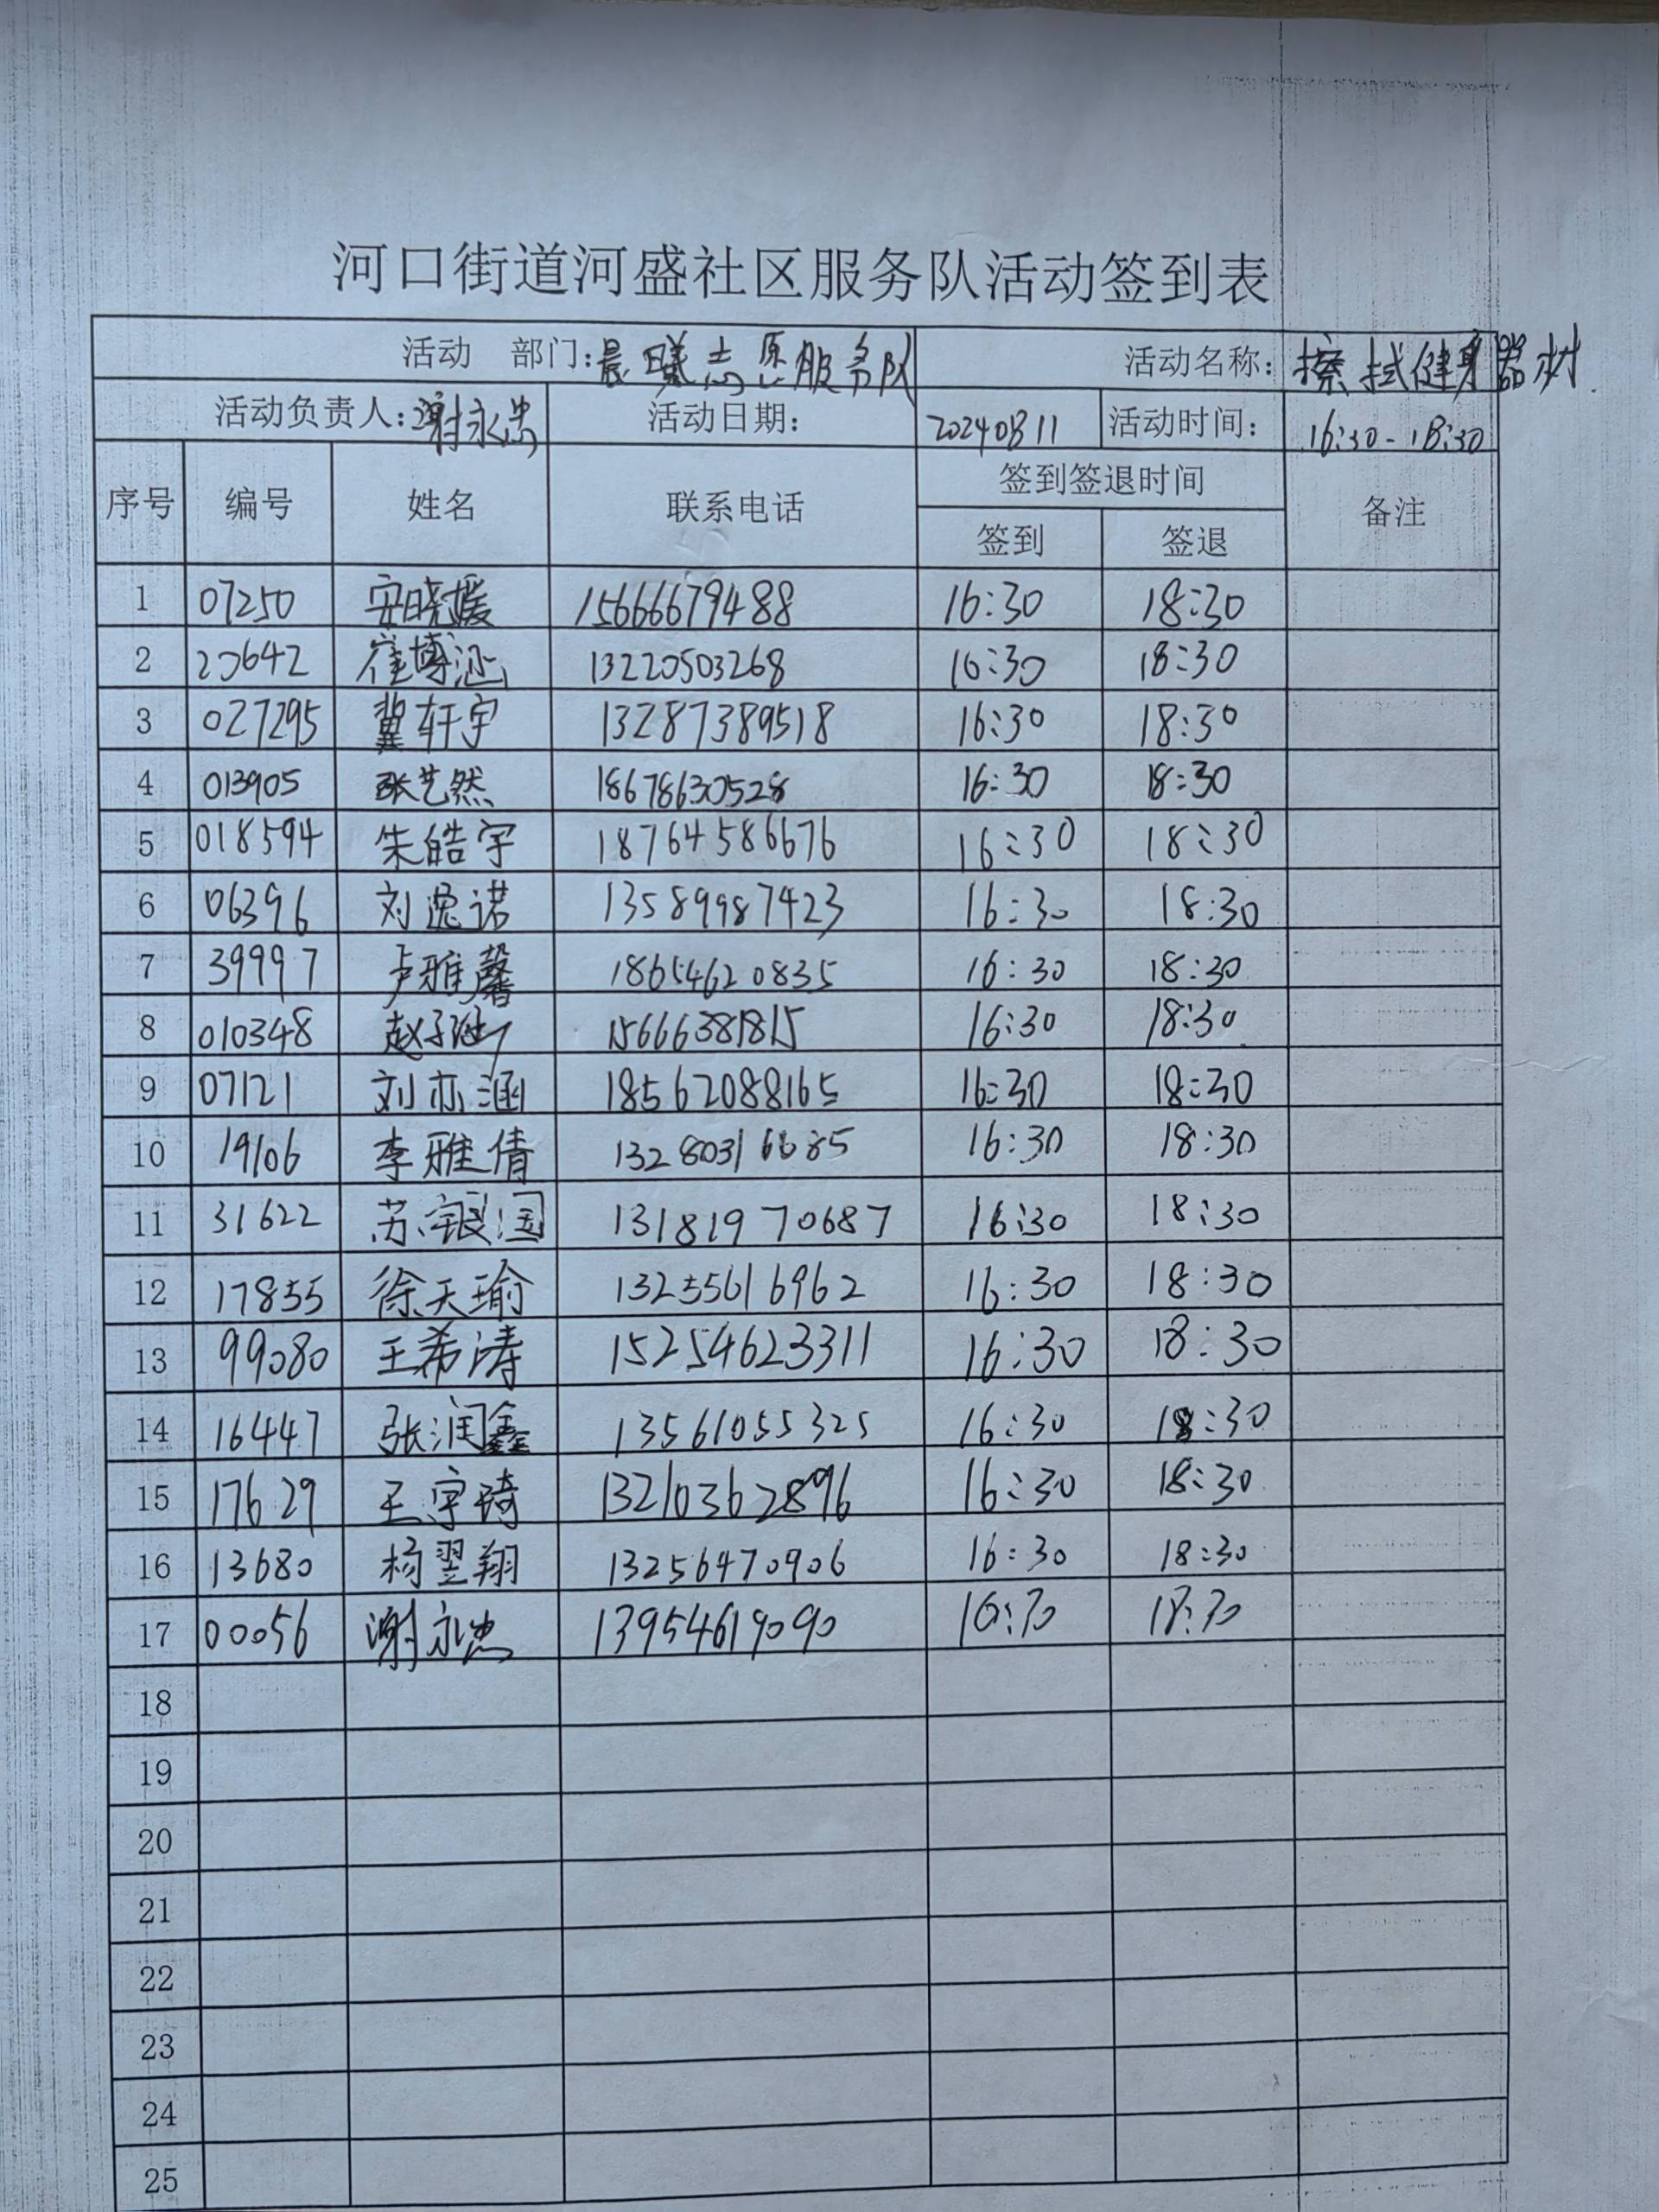 河口街道河盛社区服务队活动签到表
活动 部门:晨曦志愿服务队 活动名称:擦拭健身器材
活动负责人:谢永忠 活动日期: 20240811 活动时间: 16:30-18:30
序号 编号 姓名 联系电话 签到签退时间 备注
签到 签退
1 07250 安晓媛 15666679488 16:30 18:30
2 20642 崔博涵 13220503268 16:30 18:30
3 027295 冀轩宇 13287389518 16:30 18:30
4 013905 张艺然 18678630528 16:30 18:30
5 018594 朱皓宇 18764586676 16:30 18:30
6 06396 刘逸诺 13589987423 16:30 18:30
7 39997 卢雅馨 18654620835 16:30 18:30
8 010348 赵子涵 15666381815 16:30 18:30
9 07121 刘亦涵 18562088165 16:30 18:30
10 19106 李雅倩 13280316685 16:30 18:30
11 31622 苏银国 13181970687 16:30 18:30
12 17855 徐天瑜 13255616962 16:30 18:30
13 99080 王希涛 15254623311 16:30 18:30
14 16447 张润鑫 13561055325 16:30 18:30
15 17629 王宇琦 13210362896 16:30 18:30
16 13680 杨翌翔 13256470906 16:30 18:30
17 00056 谢永忠 13954619090 16:30 18:30
18
19
20
21
22
23
24
25